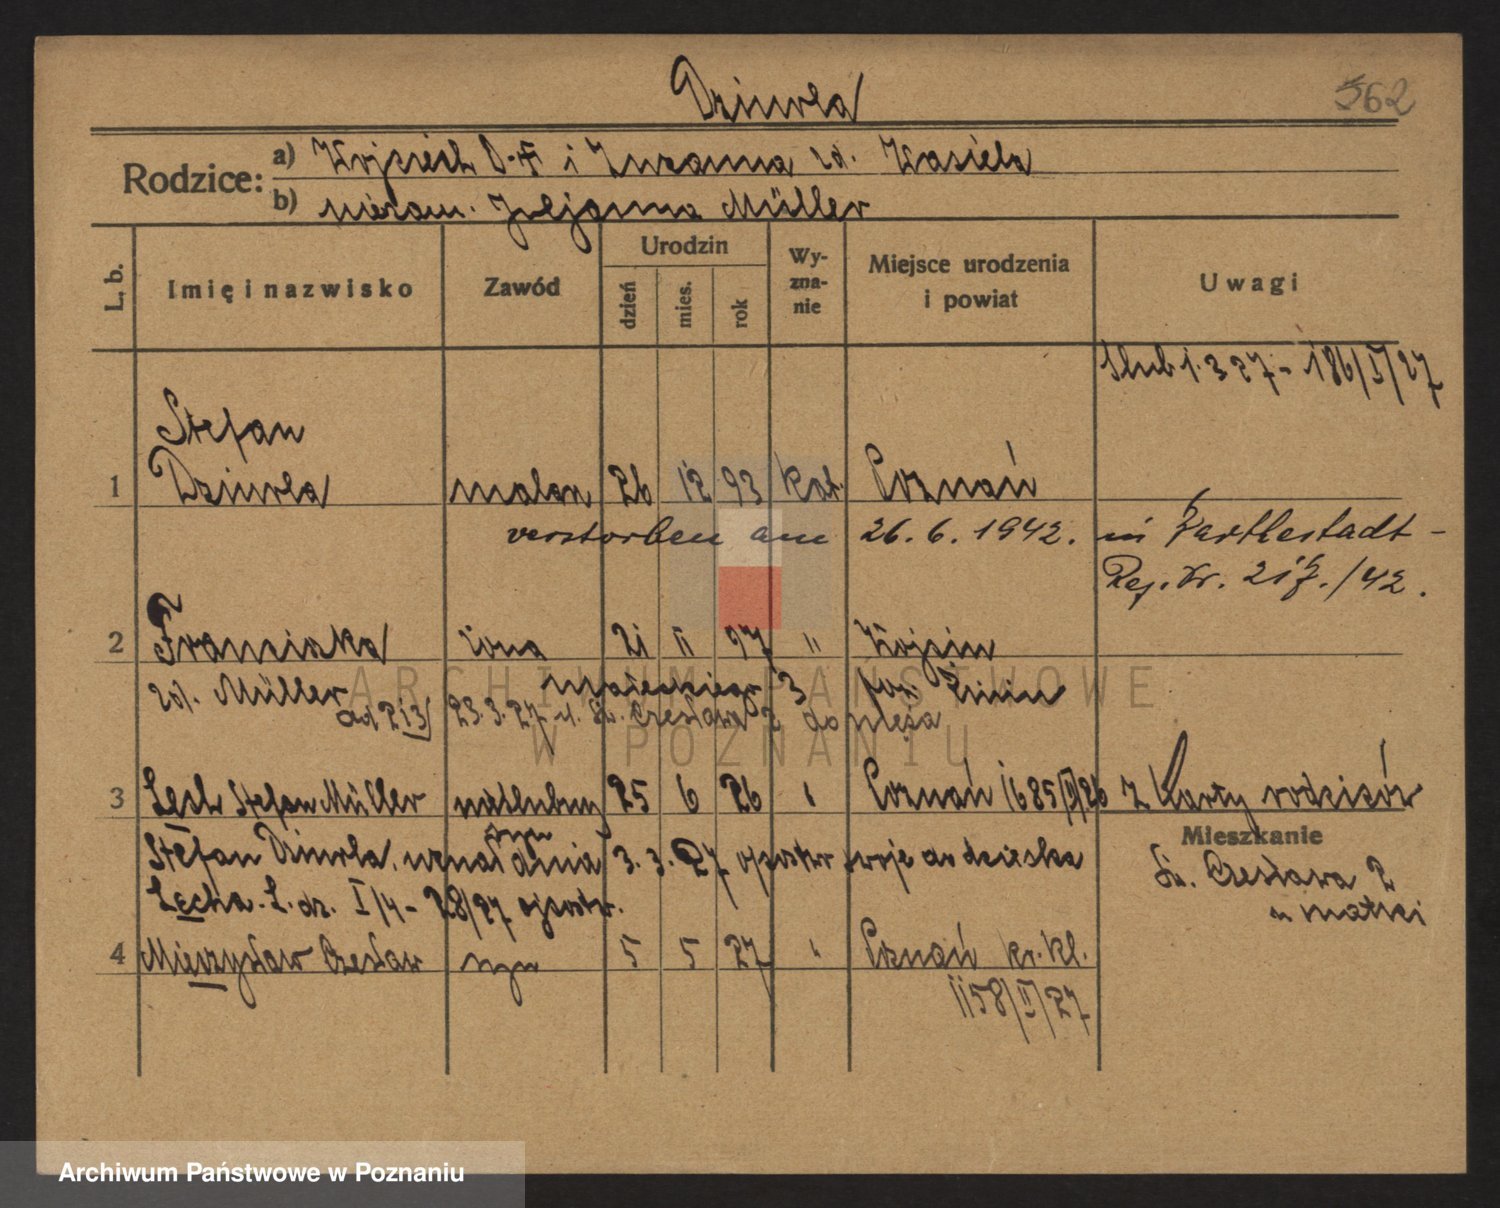 Dziurla
562
Rodzice:
a) Wojciech D. i Zuzanna zd. Kasiela
b) niezam. Julijanna Müller
L. b.
Imię i nazwisko
Zawód
Urodzin
dzień
mies.
rok
Wy-
zna-
nie
Miejsce urodzenia
i powiat
Uwagi
Ślub 1.3 27 - 186/I/27
Stefan
1 Dziurla malarz 26 12 93 kat. Poznań
verstorben am 26. 6. 1942. in
Reg. Nr. 217./42.
2 Franciszka żona 21 11 97 " Wójcin
zd. Müller 3 pow. Żnin
ad 213/ 23.3.27 ul. Św. Czesława 2 do męża
3 Lech Stefan Müller nieślubny 25 6 26 " Poznań 1685/II/26 z karty rodziców
syn
Mieszkanie
Stefan Dziurla uznał dnia 3. 3. 27 ojcostwo swoje do dziecka
Św. Czesława 2
Lecha. L. dz. I/4 - 28/27 ojcostw.
u matki
4 Mieczysław Czesław syn 5 5 27 " Poznań kr. kl.
1158/II/27
ARCHIWUM PAŃSTWOWE
W POZNANIU
Archiwum Państwowe w Poznaniu